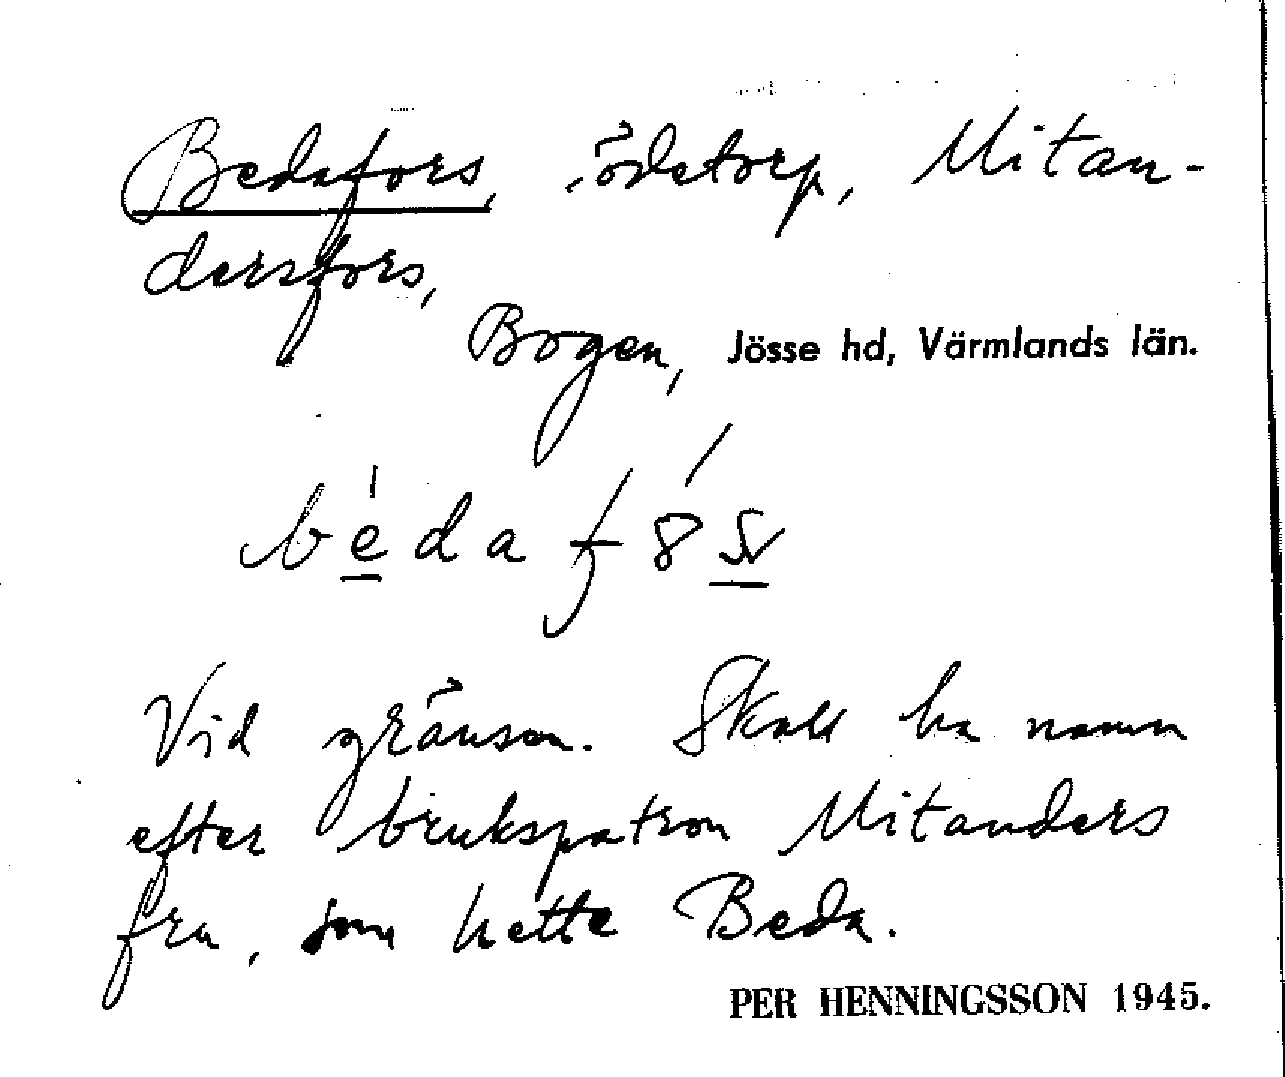 Bedafors, ödetorp, Mitan-
dersfors,
Bogen, Jösse hd, Värmlands län.
bedaf8s
Vid gränsen. Skall ha namn
efter brukspatron Mitanders
fru, som hette Beda.
PER HENNINGSSON 1945.